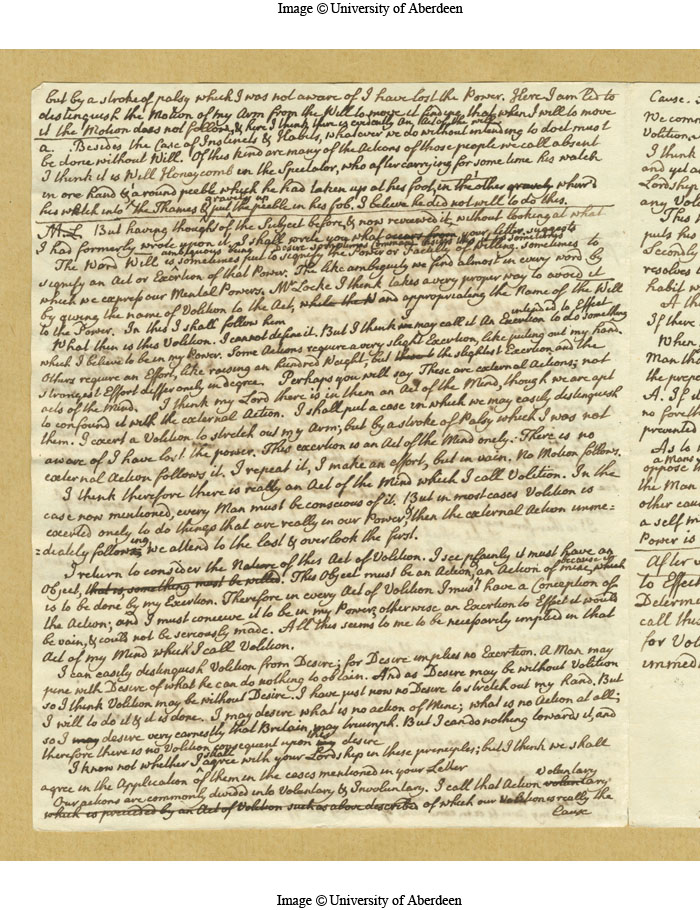 Image © University of Aberdeen
but by a stroke of palsy which I was not aware of I have lost the Power. Here I am led to
distinguish the Motion of my Arm from the Will to move it finding that when I will to move
it the Motion does not follow, & here I think there is evidently an Act of the will
a. Besides the Case of Instincts & Habits, whatever we do without intending to do it must
be done without Will. Of this kind are many of the Actions of those people we call absent
I think it is Will Honeycomb in the Spectator, who after carrying for some time his watch
in one hand & a round peeble which he had taken up at his foot, in the other gravely whurl'd
gravely up
his watch into the Thames & put the peeble in his fob. I believe he did not will to do this.
M. L. But having thought of the Subject before, & now reviewed it, without looking at what
I had formerly wrote upon it, I shall write you what your letter suggests
ambiguous being Desire Appointment Command
The Word Will is sometimes put to signify the Power or Faculty of Willing, sometimes to
signify an Act or Exertion of that Power. The like ambiguity we find almost in every word by
which we express our Mental Powers. Mr Locke I think takes a very proper way to avoid it
by giving the name of Volition to the Act, and appropriating the Name of the Will
to the Power. In this I shall follow him
intended to Effect
What then is this Volition. I cannot define it. But I think we may call it An Exertion to do something
which I believe to be in my Power. Some Actions require a very slight Exertion, like puting out my hand.
Others require an Effort, like raising an hundred Weight, but the slightest Exertion and the
strongest Effort differ onely in degree. Perhaps you will say These are external Actions; not
acts of the Mind. I think my Lord there is in them an Act of the Mind, though we are apt
to confound it with the external Action. I shall put a case in which we may easily destinguish
them. I exert a Volition to stretch out my Arm; but by a stroke of Palsy which I was not
aware of I have lost the power. This exertion is an Act of the Mind onely: There is no
external Action follows it. I repeat it, I make an effort, but in vain. No Motion follows.
I think therefore there is really an Act of the Mind which I call Volition. In the
case now mentioned, every Man must be conscious of it. But in most cases Volition is
exerted onely to do things that are really in our Power; then the external Action imme=
=diately following we attend to the last & overlook the first.
I return to consider the Nature of this Act of Volition. I see plainly it must have an
because it
Object, that is, something must be willed. This Object must be an Action, an Action of mine, which
is to be done by my Exertion. Therefore in every Act of Volition I must have a Conception of
the Action; and I must conceive it to be in my Power, otherwise an Exertion to Effect it would
be vain, & could not be seriously made. All this seems to me to be necessarily implied in that
Act of my Mind which I call Volition.
I can easily distinguish Volition from Desire; for Desire implies no Exertion. A Man may
pine with Desire of what he can do nothing to obtain. And as Desire may be without Volition
so I think Volition may be without Desire. I have just now no Desire to stretch out my hand. But
I will to do it & it is done. I may desire what is no action of Mine; what is no Action at all;
so I may desire very earnestly that Britain may triumph. But I can do nothing towards it, and
therefore there is no Volition consequent upon this my desire
I know not whether I shall agree with your Lordship in these principles; but I think we shall
agree in the Application of them in the cases mentioned in your Letter
Voluntary
Our actions are commonly divided into Voluntary & Involuntary. I call that Action voluntary
which is preceeded by an Act of Volition such as above described of which our Volition is really the
Cause
Cause.
We comm
Volition
I think
and yet a
Lordship
any Vol
This
puts his
Secondly
resolves t
habit w
A th
If there
When
Man th
the prepo
A. If d
no foreth
prevented
As to
a Mans
oppose
the Man
other cau
a self m
Power is
After
to Effect
Determ
call this
for Vol
immed
Image © University of Aberdeen